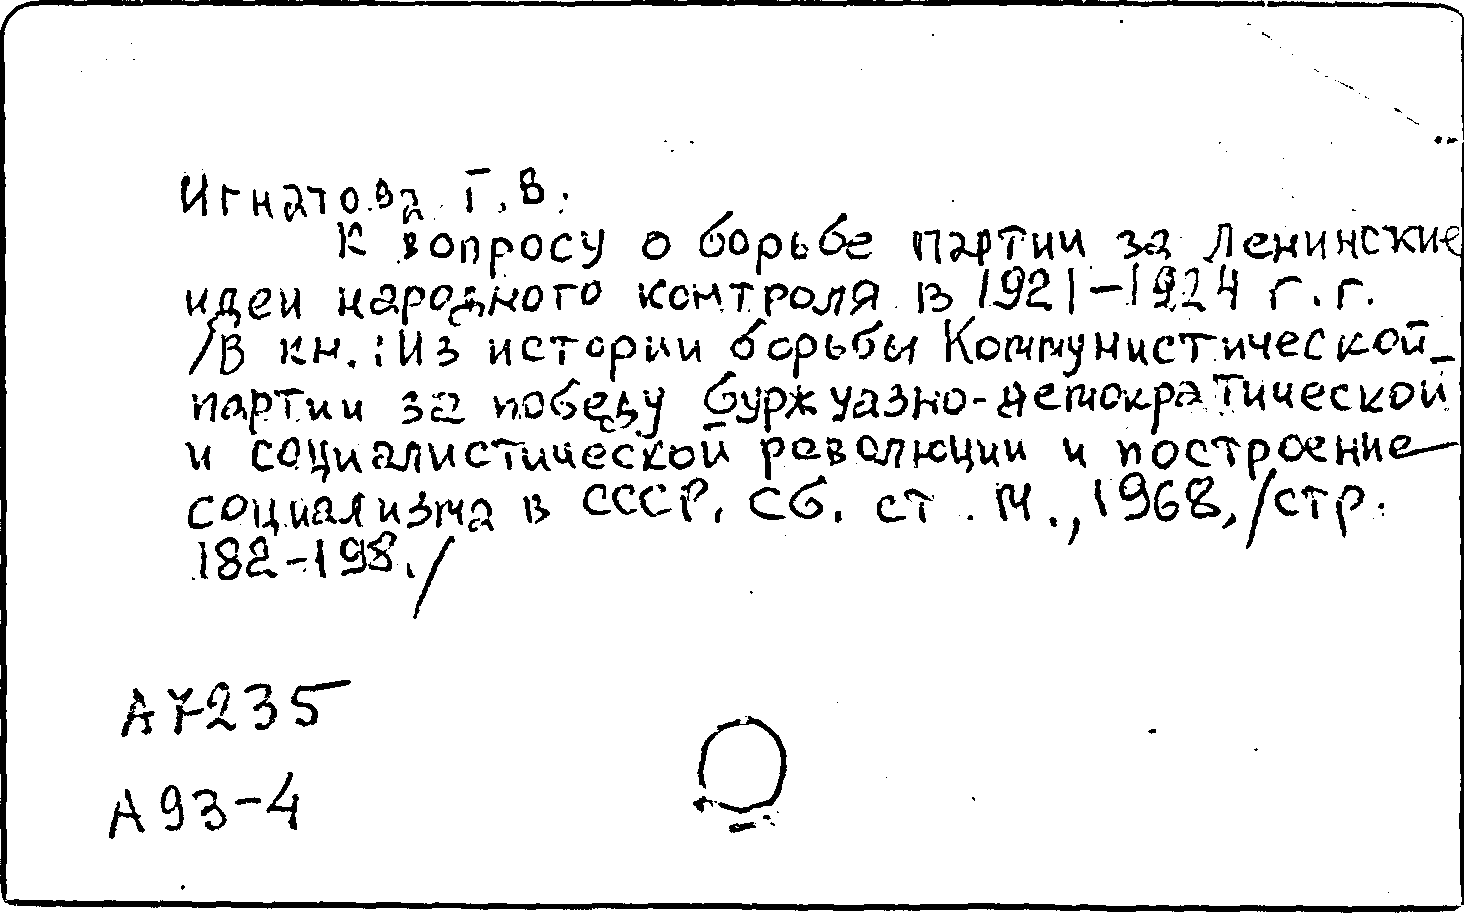 Игнатова Г.В.
К вопросу о борьбе партии за Ленинские
идеи народного контроля в 1921-1924 г.г.
/В кн.: Из истории борьбы Коммунистической
партии за победу буржуазно-демократической
и социалистической революции и построение
социализма в СССР. Сб. ст. М., 1968,/стр.
182-198./
А7235
А93-4